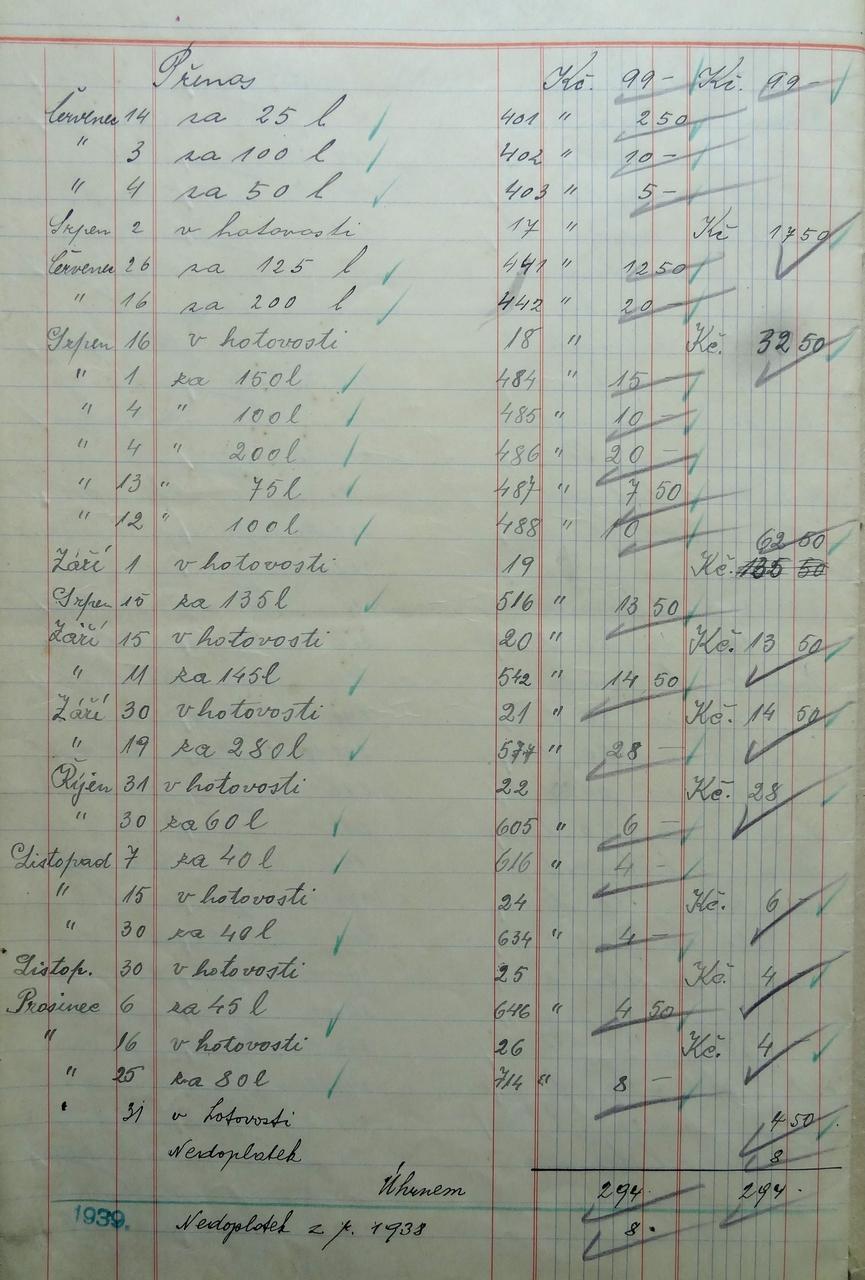 Přenos Kč. 99 - Kč. 99 -
Červenec 14 za 25 l 401 " 2 50
" 3 za 100 l 402 " 10 -
" 4 za 50 l 403 " 5 -
Srpen 2 v hotovosti 17 " Kč 17 50
Červenec 26 za 125 l 441 " 12 50
" 16 za 200 l 442 " 20 -
Srpen 16 v hotovosti 18 " Kč. 32 50
" 1 za 150 l 484 " 15 -
" 4 " 100 l 485 " 10 -
" 4 " 200 l 486 " 20 -
" 13 " 75 l 487 " 7 50
" 12 " 100 l 488 " 10
62 50
Září 1 v hotovosti 19 Kč. 135 50
Srpen 15 za 135 l 516 " 13 50
Září 15 v hotovosti 20 " Kč. 13 50
" 11 za 145 l 542 " 14 50
Září 30 v hotovosti 21 " Kč. 14 50
" 19 za 280 l 577 " 28 -
Říjen 31 v hotovosti 22 Kč. 28
" 30 za 60 l 605 " 6 -
Listopad 7 za 40 l 616 " 4 -
" 15 v hotovosti 24 Kč. 6
" 30 za 40 l 634 " 4 -
Listop. 30 v hotovosti 25 Kč. 4
Prosinec 6 za 45 l 646 " 4 50
" 16 v hotovosti 26 Kč. 4
" 25 za 80 l 714 " 8 -
" 31 v hotovosti 4 50
Nedoplatek 8
Úhrnem 294 · 294 ·
1939.
Nedoplatek z r. 1938 8 ·